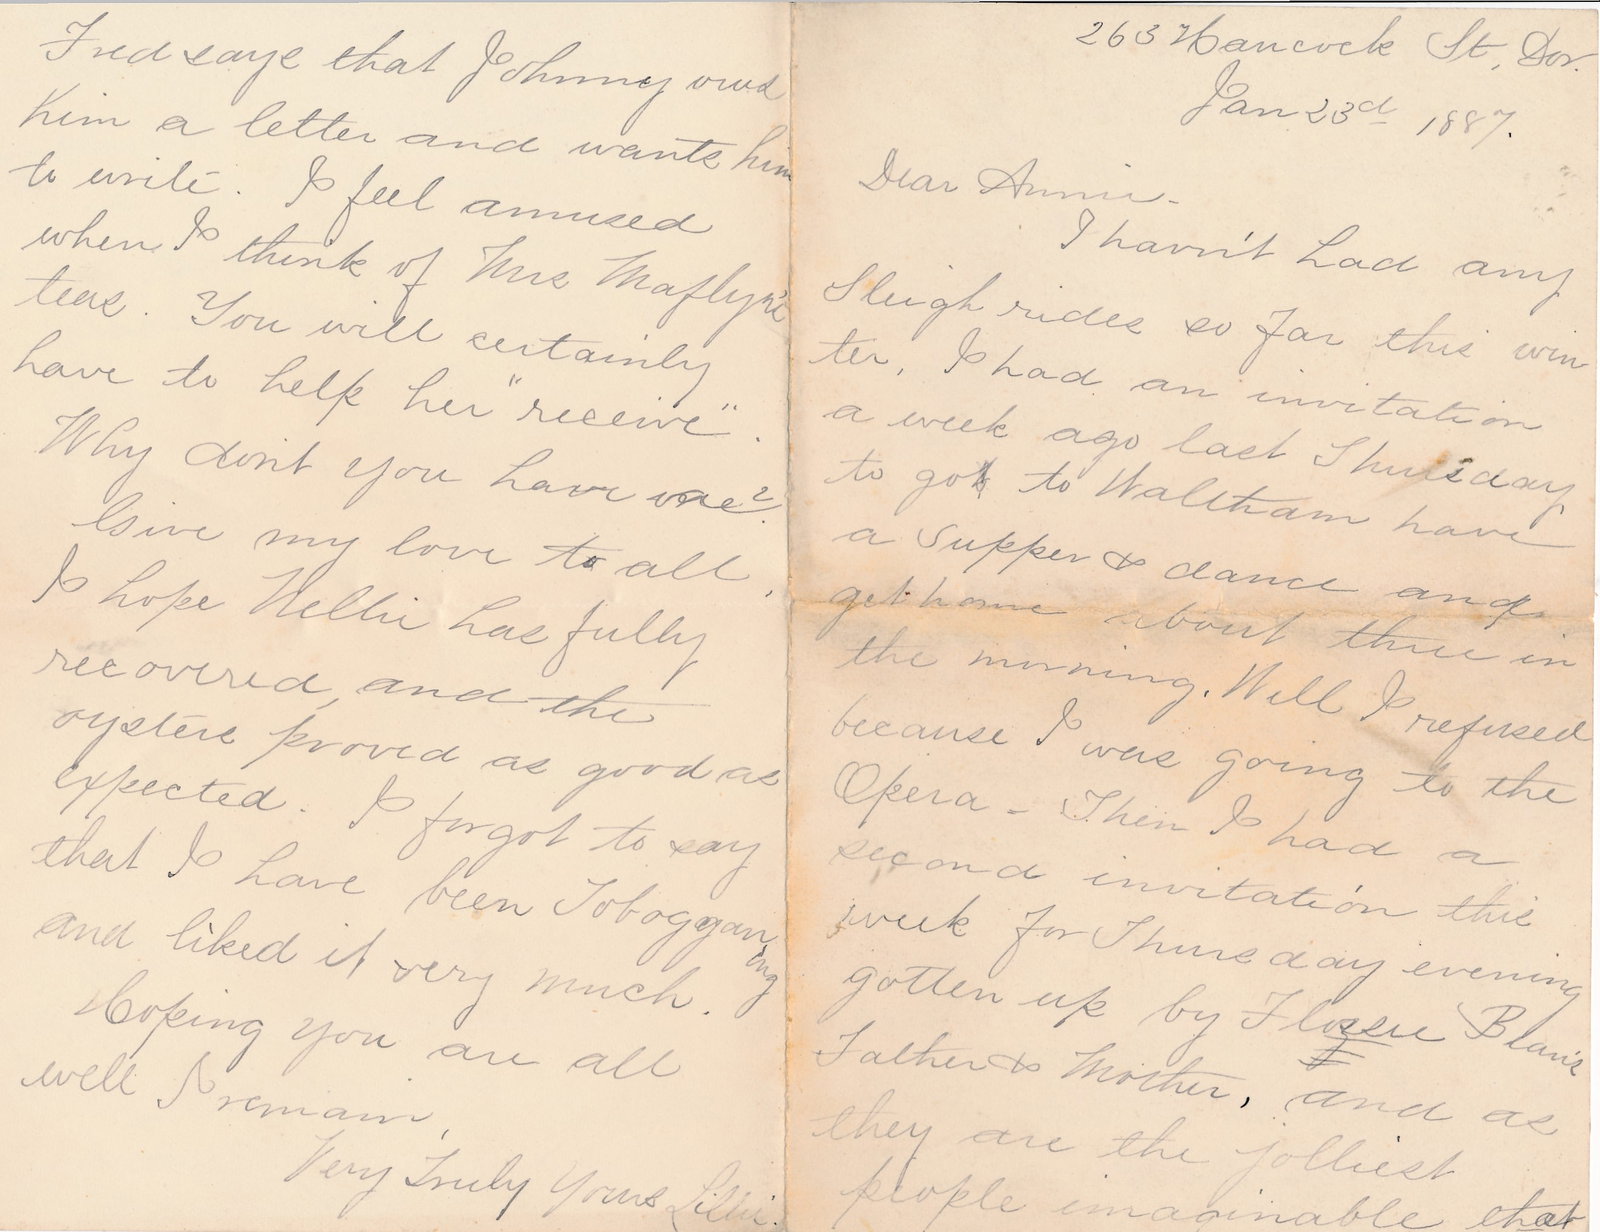 263 Hancock St, Dor.
Jan 23d 1887.
Dear Annie -
I havn't had any
Sleigh rides so far this win
ter, I had an invitation
a week ago last Thursday
to go to Waltham have
a supper & dance and
get home about three in
the morning. Well I refused
because I was going to the
Opera - Then I had a
second invitation this
week for Thursday evening
gotten up by Flossie Blair's
Father & Mother, and as
they are the jolliest
people imaginable that
Fred says that Johnny ows
him a letter and wants him
to write. I feel amused
when I think of Mrs Maflyn's
teas. You will certainly
have to help her "receive".
Why don't you have one?
Give my love to all,
I hope Nellie has fully
recovered, and the
oysters proved as good as
expected. I forgot to say
that I have been Toboggan
ing
and liked it very much.
Hoping you are all
well I remain,
Very Truly Yours Lillie.